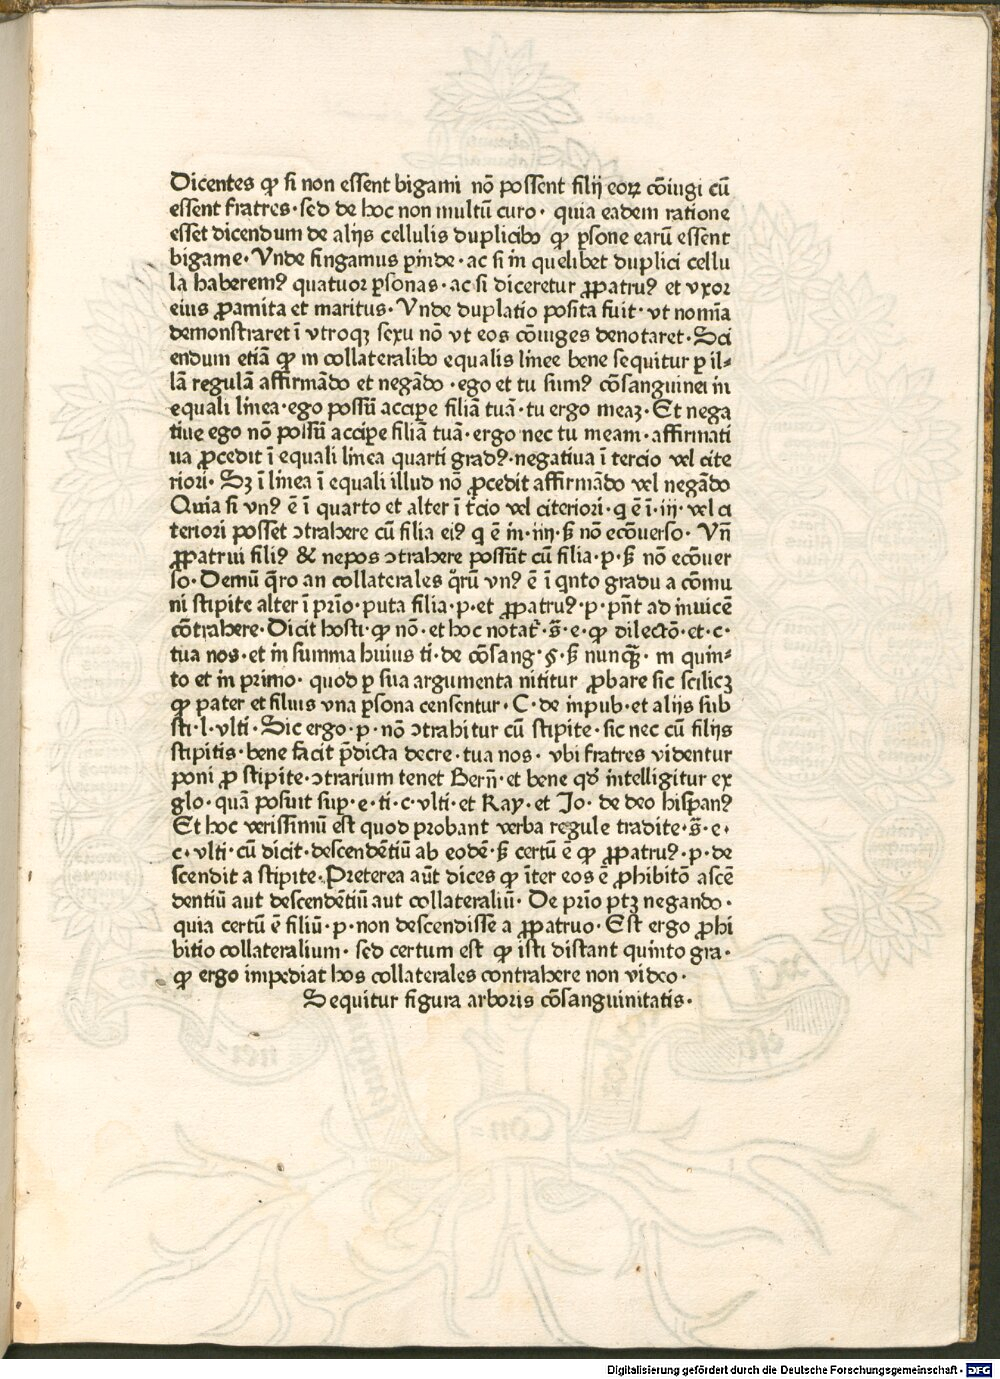 Dicentes ꝙ si non essent bigami nō possent filij eoꝝ cōiugi cū
essent fratres·sed de hoc non multū curo· quia eadem ratione
esset dicendum de alijs cellulis duplicibꝰ ꝙ ꝑsone earū essent
bigame·Vnde fingamus ꝑinde·ac si in quelibet duplici cellu
la haberemꝰ quatuor ꝑsonas·ac si diceretur ꝓpatruꝰ et vxor
eius ꝓamita et maritus·Vnde duplatio posita fuit·vt nomīa
demonstraret ī vtroqꝫ sexu nō vt eos cōiuges denotaret·Sci
endum etiā ꝙ in collateralibꝰ equalis linee bene sequitur ꝑ il⸗
lā regulā affirmādo et negādo·ego et tu sumꝰ cōsanguinei in
equali linea·ego possū accipe filiā tuā·tu ergo meaꝫ·Et nega
tiue ego nō possū accipe filiā tuā·ergo nec tu meam·affirmati
ua ꝓcedit ī equali linea quarti gradꝰ·negatiua ī tercio vel cite
riori·Sꝫ ī linea ī equali illud nō ꝓcedit affirmādo vel negādo
Quia si vnꝰ ē ī quarto et alter ī t̄cio vel citeriori·q ē ī·iij·vel ci
teriori posset ↄtrahere cū filia eiꝰ q ē in·iiij·s̄ nō ecōuerso·Vn̄
ꝓpatrui filiꝰ & nepos ↄtrahere possūt cū filia·p·s̄ nō ecōuer
so·Demū q̄ro an collaterales q̄rū vnꝰ ē ī qnto gradu a cōmu
ni stipite alter ī prīo·puta filia·p·et ꝓpatruꝰ·p·pn̄t ad inuicē
cōtrahere·Dicit hosti·ꝙ nō·et hoc notat᷑·s̄·e·ꝙ dilectō·et·c·
tua nos·et in summa huius ti·de cōsang·§·s̄ nunqꝫ· in quin⸗
to et in primo· quod ꝑ sua argumenta nititur ꝓbare sic scilicꝫ
ꝙ pater et filius vna ꝑsona censentur·C·de inpub·et alijs sub
sti·l·vlti·Sic ergo·p·nō ↄtrahitur cū stipite·sic nec cū filijs
stipitis·bene facit p̄dicta decre·tua nos· vbi fratres videntur
poni ꝓ stipite·ↄtrarium tenet Bern̄·et bene qd̄ intelligitur ex
glo·quā posuit sup·e·ti·c·vlti·et Ray·et Jo· de deo hispanꝰ
Et hoc verissimū est quod probant verba regule tradite·s̄·e·
c·vlti·cū dicit·descendētiū ab eodē·s̄ certū ē ꝙ ꝓpatruꝰ·p·de
scendit a stipite·Preterea aūt dices ꝙ īter eos ē ꝓhibitō ascē
dentiū aut descendētiū aut collateraliū· De prīo ptꝫ negando·
quia certū ē filiū·p·non descendisse a ꝓpatruo·Est ergo ꝓhi
bitio collateralium·sed certum est ꝙ isti distant quinto gra·
ꝙ ergo impediat hos collaterales contrahere non video·
Sequitur figura arboris cōsanguinitatis·
Digitalisierung gefördert durch die Deutsche Forschungsgemeinschaft - DFG